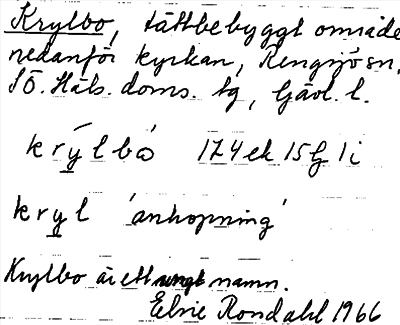 Krylbo, tättbebyggt område
nedanför kyrkan, Rengsjö sn,
SÖ. Häls. doms. tg, Gävl. l.
krylbo 17 4 ek 15G 1i
kryl 'anhopning'
Krylbo är ett ungt namn.
Elsie Rondahl 1966